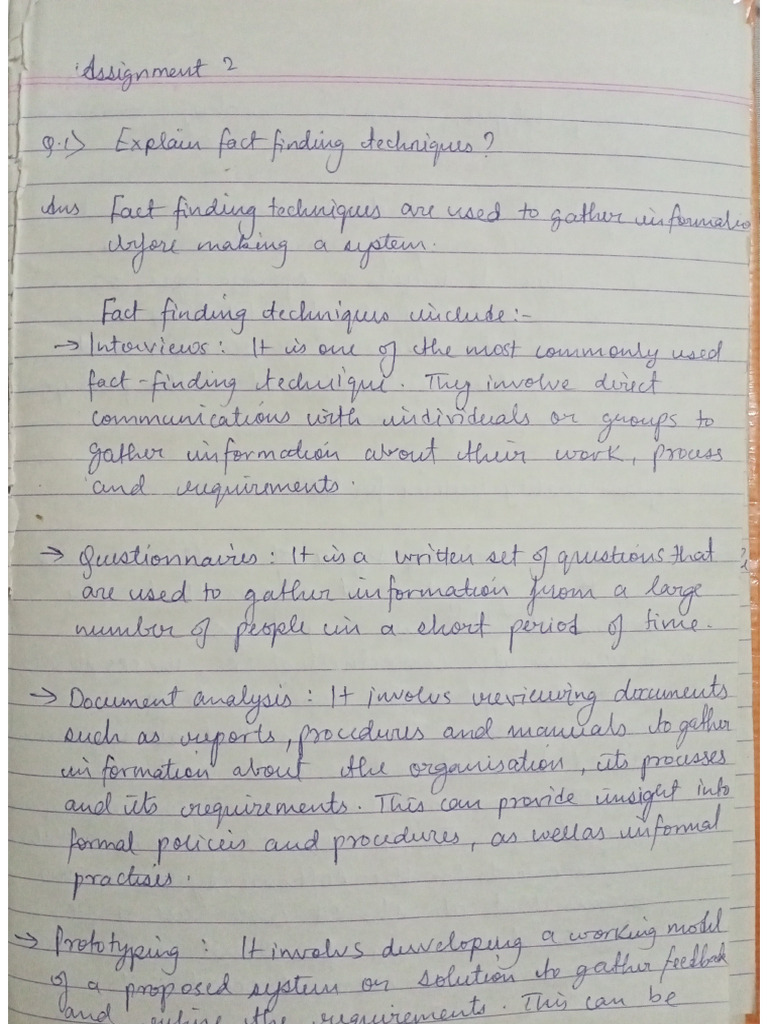 Assignment 2
Q.1) Explain fact finding techniques?
Ans Fact finding techniques are used to gather informatio
before making a system.
Fact finding techniques include:-
→ Interviews: It is one of the most commonly used
fact-finding technique. They involve direct
communications with individuals or groups to
gather information about their work, process
and requirements.
→ Questionnaires: It is a written set of questions that
are used to gather information from a large
number of people in a short period of time.
→ Document analysis: It involvs reviewing documents
such as reports, procedures and manuals to gather
information about the organisation, its processes
and its requirements. This can provide insight into
formal policeis and procedures, as well as informal
practises.
→ Prototyping: It involvs developing a working model
of a proposed system or solution to gather feedback
and refine the requirements. This can be